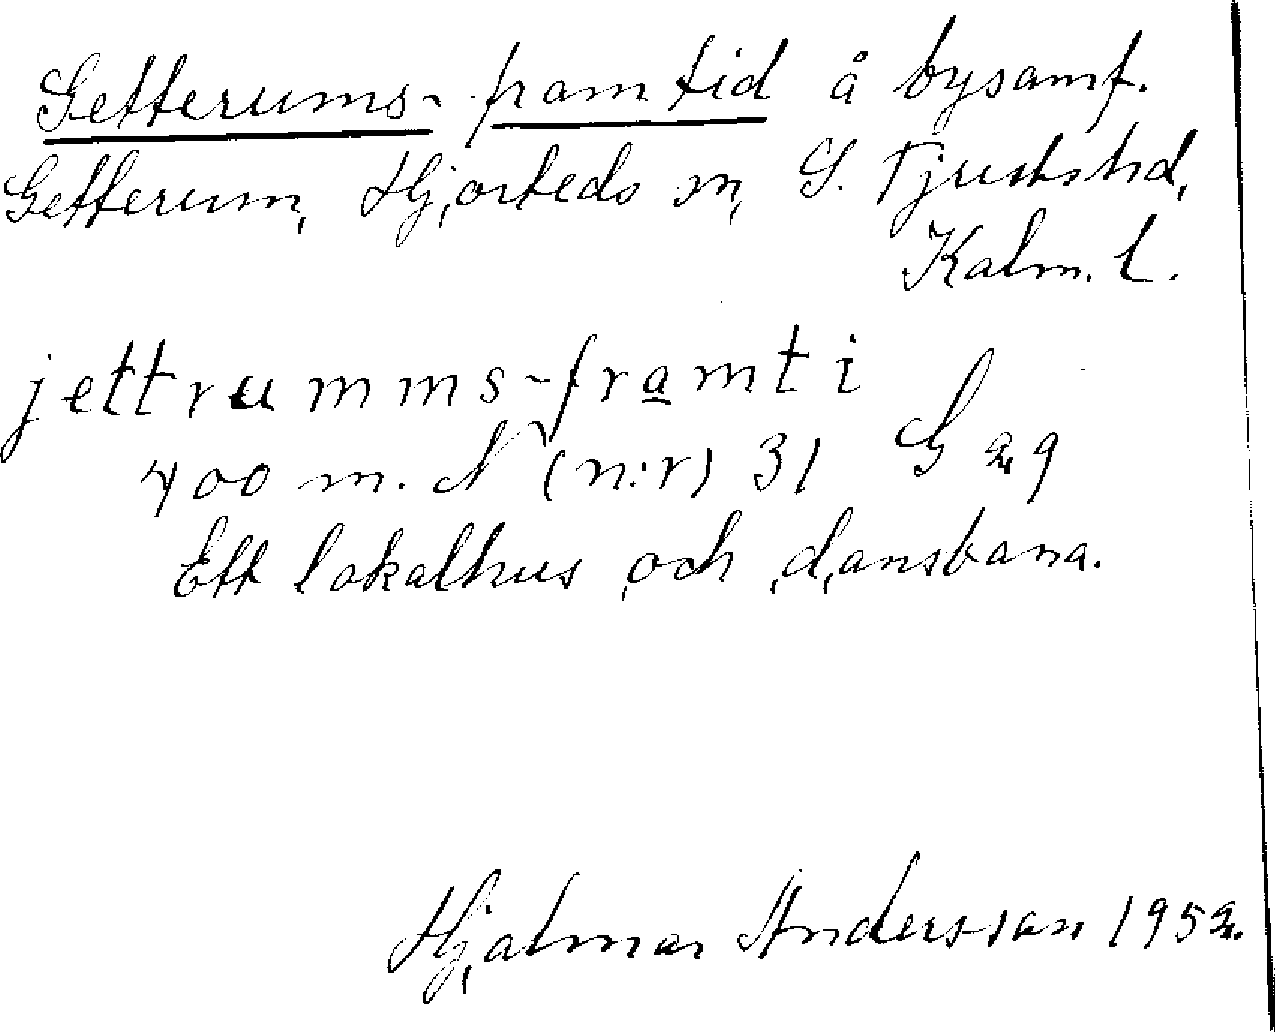 Getterums-framtid å bysamf.
Getterum, Hjorteds sn, S. Tjusts hd,
Kalm. l.
jettrumms-framti
400 m. N (n:r) 31 G 29
Ett lokalhus och dansbana.
Hjalmar Andersson 1952.